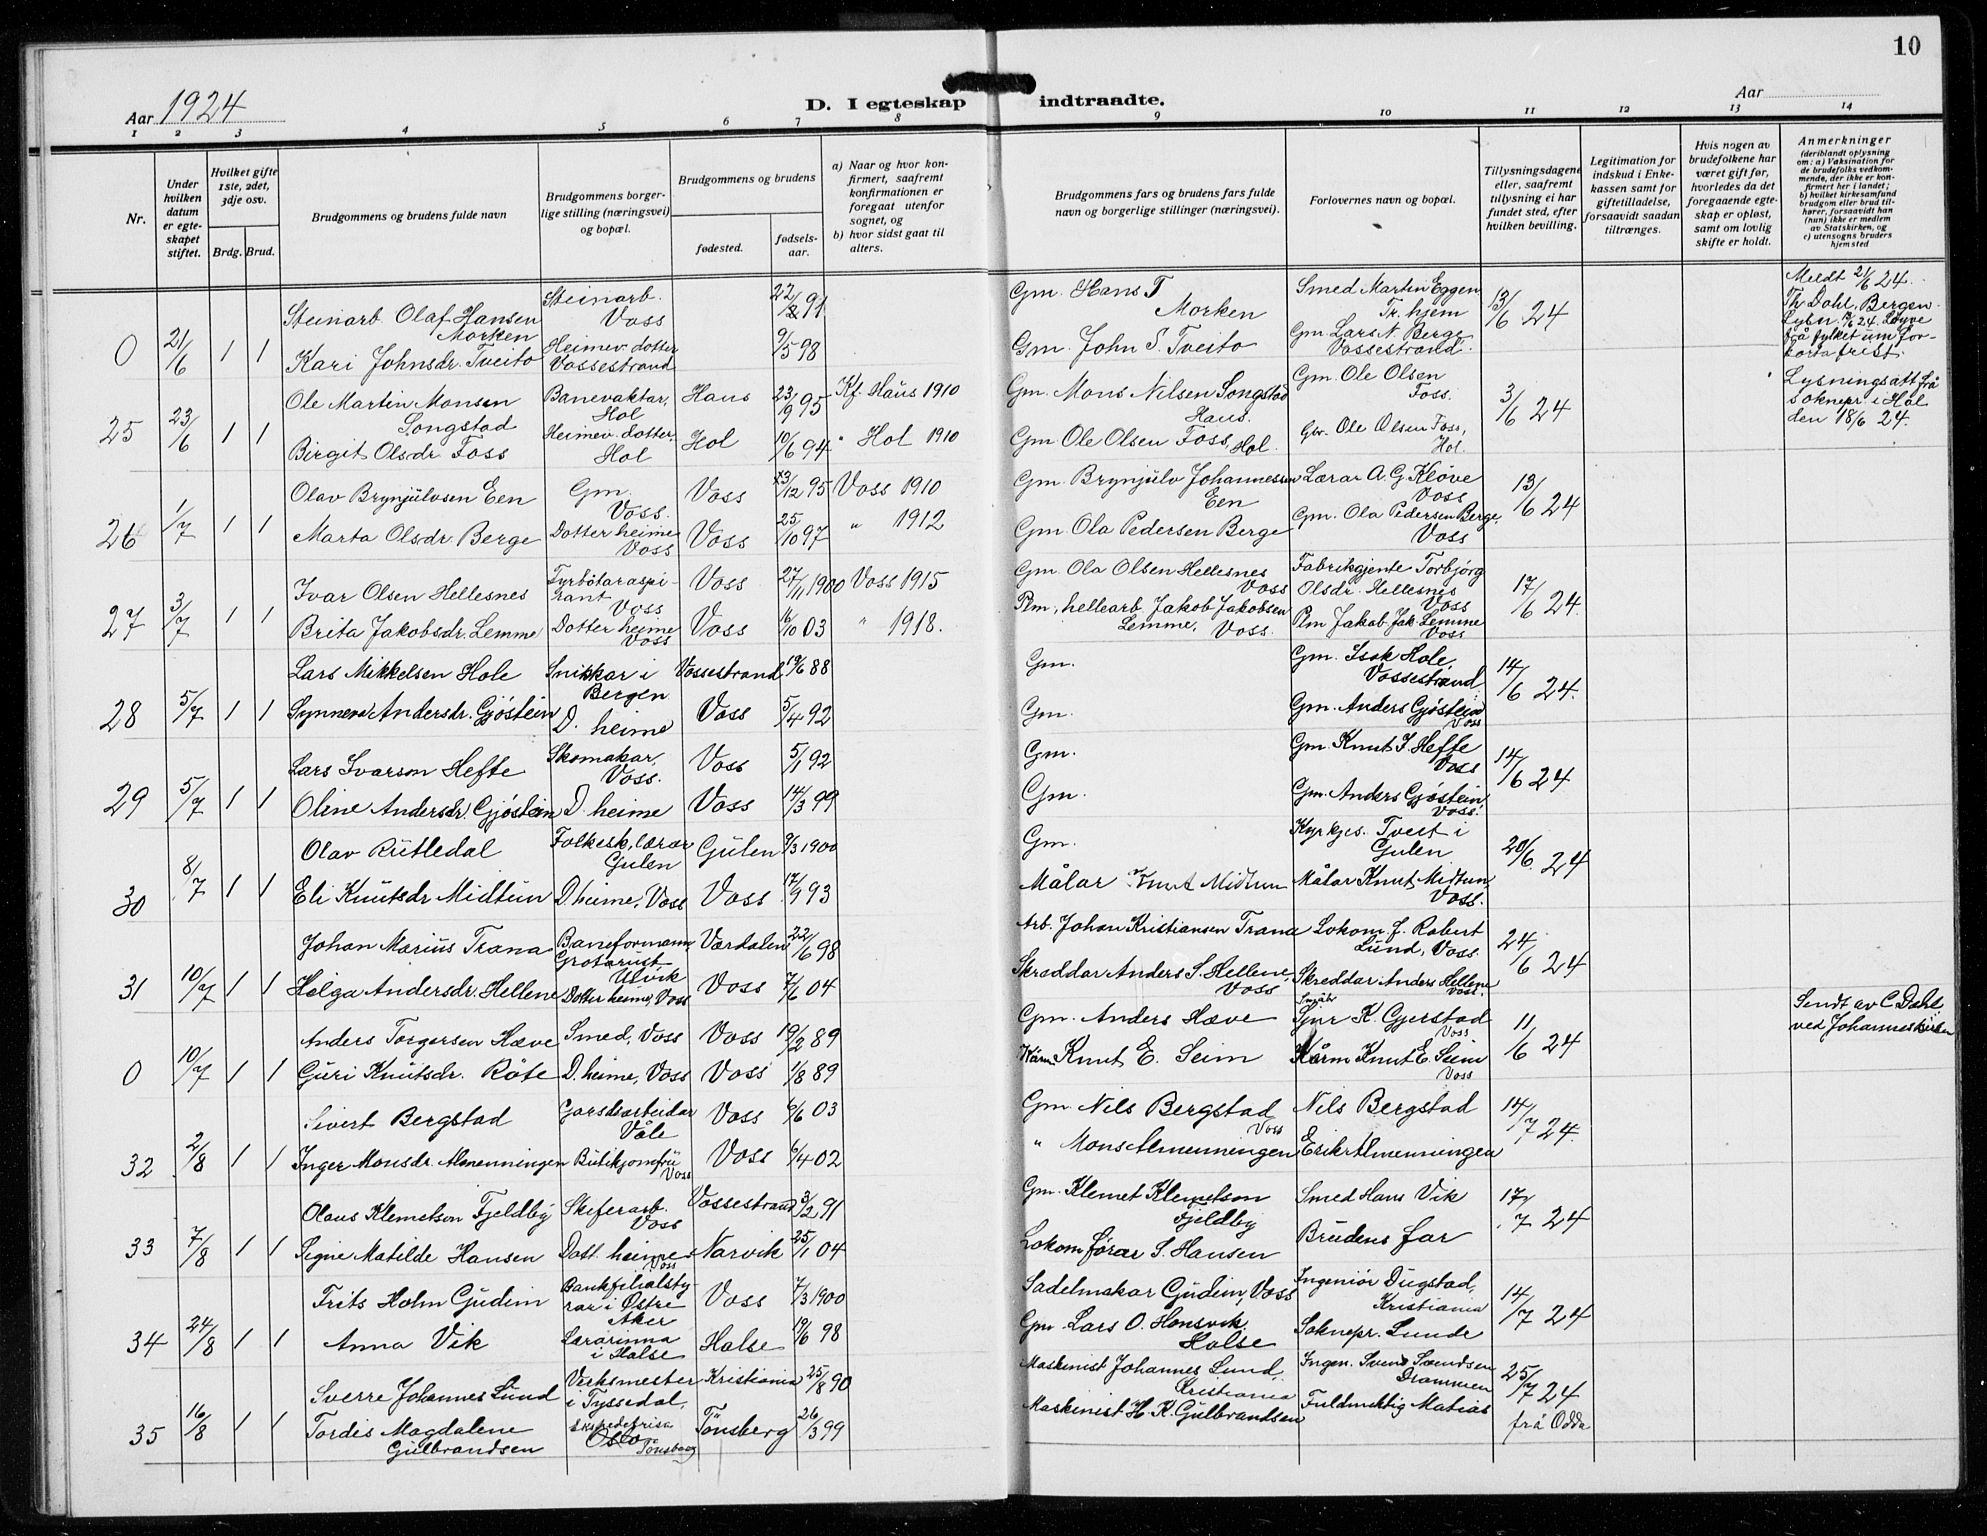 10
Aar 1924
D. I egteskap indtraadte.
Aar
1 2 3 4 5 6 7 8 9 10 11 12 13 14
Nr.
Under hvilken datum er egteskapet stiftet.
Hvilket gifte 1ste, 2det, 3dje osv.
Brdg. Brud.
Brudgommens og brudens fulde navn
Brudgommens borgerlige stilling (næringsvei) og bopæl.
Brudgommens og brudens
fødested.
fødselsaar.
a) Naar og hvor konfirmert, saafremt konfirmationen er foregaat utenfor sognet, og
b) hvor sidst gaat til alters.
Brudgommens fars og brudens fars fulde navn og borgerlige stillinger (næringsvei).
Forlovernes navn og bopæl.
Tillysningsdagene eller, saafremt tillysning ei har fundet sted, efter hvilken bevilling.
Legitimation for indskud i Enkekassen samt for giftetilladelse, forsaavidt saadan tiltrænges.
Hvis nogen av brudefolkene har været gift før, hvorledes da det foregaaende egteskap er opløst, samt om lovlig skifte er holdt.
Anmerkninger
(deriblandt oplysning om: a) Vaksination for de brudefolks vedkommende, der ikke er konfirmert her i landet; b) hvilket kirkesamfund brudgom eller brud tilhører, forsaavidt han (hun) ikke er medlem av Statskirken, og c) utensogns bruders hjemsted
Steinarb. Olaf Hansen Morken Steinarb. Voss 91 Gm. Hans T Morken Smed Martin Eggen Tr.hjem 13/6 24 Meldt 21/6 24. Th Dahl, Bergen.
0 21/6 1 1 Kari Johnsdr. Tveito Heimev. dotter Vossestrand 9/5 98 Gm. John S. Tveito Gm. Lars N. Berge Vossestrand. Løyve frå fylket um forkorta frist.
Ole Martin Monsen Songstad Banevaktar, Hol Haus 23/9 95 Kf. Haus 1910 Gm. Mons Nilsen Songstad Haus. Gm. Ole Olsen Foss. 3/6 24 Lysningsatt frå soknepr. i Hol den 18/6 24.
25 23/6 1 1 Birgit Olsdr Foss Heimev. dotter, Hol Hol 10/6 94 " Hol 1910 Gm Ole Olsen Foss, Hol. Ole Olsen Foss, Hol.
Olav Brynjulvsen Een Gm. Voss. Voss 23/12 95 Voss 1910 Gm. Brynjulv Johannessen Een Lærar A. G. Kløve Voss 13/6 24
26 1/7 1 1 Marta Olsdr. Berge Dotter heime Voss Voss 25/10 97 " 1912 Gm. Ola Pedersen Berge Gm. Ola Pedersen Berge, Voss
Ivar Olsen Hellesnes Tyrbôtaraspirant Voss Voss 27/11 1900 Voss 1915 Gm. Ola Olsen Hellesnes Voss Fabrikgjente Torbjørg Olsdr. Hellesnes Voss 17/6 24.
27 3/7 1 1 Brita Jakobsdr. Lemme Dotter heime Voss Voss 16/10 03 " 1918. Plm, hellearb. Jakob Jakobsen Lemme, Voss. Plm Jakob Jak. Lemme Voss
Lars Mikkelsen Hole Snikkar i Bergen Vossestrand 19/6 88 Gm. Gm. Isak Hole, Vossestrand 14/6 24.
28 5/7 1 1 Synneva Andersdr. Gjøstein D. heime Voss 5/4 92 Gm. Gm. Anders Gjøstein Voss
Lars Ivarson Hefte Skomakar, Voss. Voss 5/1 92 Gm. Gm. Knut I. Hefte Voss 14/6 24
29 5/7 1 1 Oline Andersdr. Gjøstein D. heime Voss 14/3 99 Gm. Gm. Anders Gjøstein Voss.
Olav Rutledal Folkesk.lærar Gulen Gulen 9/3 1900 Gm. Kyrkjes. Tveit i Gulen 20/6 24
30 8/7 1 1 Eli Knutsdr Midtun D heime, Voss Voss 17/9 93 Målar Knut Midtun Målar Knut Midtun, Voss.
Johan Marius Trana Baneformann Ulvik Værdalen 22/6 98 Arb. Johan Kristiansen Trana Lokom.f. Robert Lund, Voss. 24/6 24
31 10/7 1 1 Helga Andersdr. Hellene Dotter heime, Voss Voss 7/6 04 Skræddar Anders S. Hellene, Voss Skreddar Anders Hellene Voss.
Anders Torgersen Hæve Smed, Voss Voss 19/2 89 Gm. Anders Hæve Sjur K. Gjerstad Voss 11/6 24 Sendt av C Dahl ved Johanneskirken
0 10/7 1 1 Guri Knutsdr. Røte D. heime, Voss Voss 1/8 89 Knut E. Seim Kårm Knut E. Seim Voss
Sivert Bergstad Gardsarbeidar Våle Voss 6/6 03 Gm. Nils Bergstad Voss Nils Bergstad 14/7 24.
32 2/8 1 1 Inger Monsdr. Almenningen Butikjomfru Voss Voss 6/4 02 " Mons Almenningen Erik Almenningen
Olaus Klemetson Fjeldby Skiferarb. Voss Vossestrand 3/2 91 Gm. Klemet Klemetson Fjeldby Smed Hans Vik 17/7 24
33 7/8 1 1 Signe Matilde Hansen Dott. heime Voss Narvik 25/1 04 Lokomførar S. Hansen Brudens far
Frits Holm Gudim Bankfilialstyrar i Østre Aker Voss 7/3 1900 Sadelmakar Gudim, Voss Ingeniør Dugstad, Kristiania 14/7 24
34 24/8 1 1 Anna Vik Lærarinna i Halse Halse 19/6 98 Gm. Lars O. Honsvik, Halse Soknepr. Lunde
Sverre Johannes Lund Verksmester i Tyssedal, Kristiania 25/8 90 Maskinist Johannes Lund, Kristiania Ingen. Svend Svendsen Drammen 25/7 24
35 16/8 1 1 Tordis Magdalene Gulbrandsen Oslo Tønsberg Tønsberg 26/3 99 Maskinist H. K. Gulbrandsen Fuldmektig Matias frå Odda